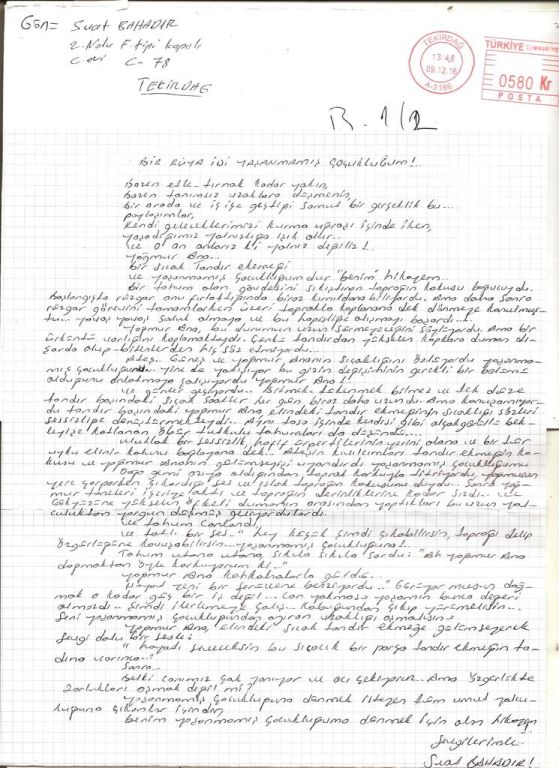 Gön= Suat BAHADIR
2 Nolu F. tipi kapalı
C. evi C-78
TEKİRDAĞ
TEKİRDAĞ
13:48
09.12.16
A-3186
TÜRKİYE CUMHURİYETİ
0580 Kr
POSTA
BİR RÜYA İDİ YAŞANMAMIŞ ÇOCUKLUĞUM!..
Bazen etle-tırnak kadar yakın,
Bazen tanımsız uzaklara düşmenin,
bir arada ve iç içe geçtiği somut bir gerçeklik bu...
paylaşımlar,
Kendi geleceklerimizi kurma uğraşı içinde iken,
yaşadığımız yalnızlığa ışık olur..
Ve o an anlarız ki yalnız değiliz!.
Yağmur Ana..
bir sıcak tandır ekmeği
ve yaşanmamış çocukluğumdur "benim" hikayem..
Bir tohum olan gövdesini sıkıştıran toprağın kokusu boğucuydu.
Başlangıçta rüzgar onu fırlattığında biraz kımıldanabiliyordu. Ama daha sonra
rüzgar görevini tamamlarken üzeri toprakla kaplanana dek
yavaş yavaş
Yağmur Ana, bu durumun uzun sürmeyeceğini söylüyordu. Ama bir
varlığını koplamaktaydı. Çünkü tandırdan yükselen kapkara duman dı-
şarda olup-bitenlerden hiç söz etmiyordu...
Ateş, Güneş ve Yağmur Ananın sıcaklığını özlüyordu yaşanma-
mış çocukluğum. Yine de bu gizin değişiminin gerekli bir
olduğunu anlatmaya çalışıyordu Yağmur Ana!.
ve günler geçiyordu.. Bitmek tükenmek bilmez ve tek düze
tandır başındaki sıcak saatler her gün, biraz daha uzundu. Ama konuşamıyor-
du tandır başındaki Yağmur Ana elindeki tandır ekmeğinin sıcaklığı sözleri
sessizliğe
Ulutluk bir sessizlik, hafif ürpertilerinin yerini alana ve bir
uyku elini kolunu bağlayana dek.. Ateşin kıvılcımları tandır ekmeğin ko-
kusu ve Yağmur Ananın gülümseyişi uyandırdı yaşanmamış çocukluğumu
toprak korkuyla titriyordu, yağmurun
yere çarparken çıkardığı ses ve ıslak toprağın kokusunu duydu... Sonra yağ-
mur taneleri içeriye aktı ve toprağın derinliklerine kadar sızdı... ve
gökyüzüne yükselen öfkeli dumanın arasından yaptıkları bu uzun yol-
culuktan yorgun
Ve tohum canlandı!
ve tatlı bir ses.. "hey kaçak şimdi çıkabilirsin, toprağı delip
özgürlüğüne kavuşabilirsin.. yaşanmamış çocukluğum!.
Tohum utana utana, sıkıla sıkıla sordu: "Ah Yağmur Ana
doğmaktan öyle korkuyorum ki.."
Yağmur Ana kahkahalarla güldü...
"Hayat yeni bir serüvene benziyordu..." Görüyor musun doğ-
mak o kadar güç bir iş değil... Can yakmasa yaşamın bunca değeri
olmazdı... Şimdi ilerlemeye çalış.. kabuğundan çıkıp yürümelisin...
Seni yaşanmamış çocukluğundan ayıran uzaklığı aşmalısın..
Yağmur Ana, elindeki sıcak tandır ekmeğe gülümseyerek
sevgi dolu bir sesle:
"haydi sevecek­sin bu sıcacık bir parça tandır ekmeğin ta-
dına varınca.."
Sonra..
Belki canımız çok yanıyor ve acı çekiyoruz.. Ama özgürlükte
zorlukları aşmak değil mi?
yaşanmamış çocukluğuna dönmek isteyen hem umut yolcu-
luğuna çıkanlar içindir,
benim yaşanmamış çocukluğuma dönmek için olan hikayem
Sevgilerimle..
Suat BAHADIR!